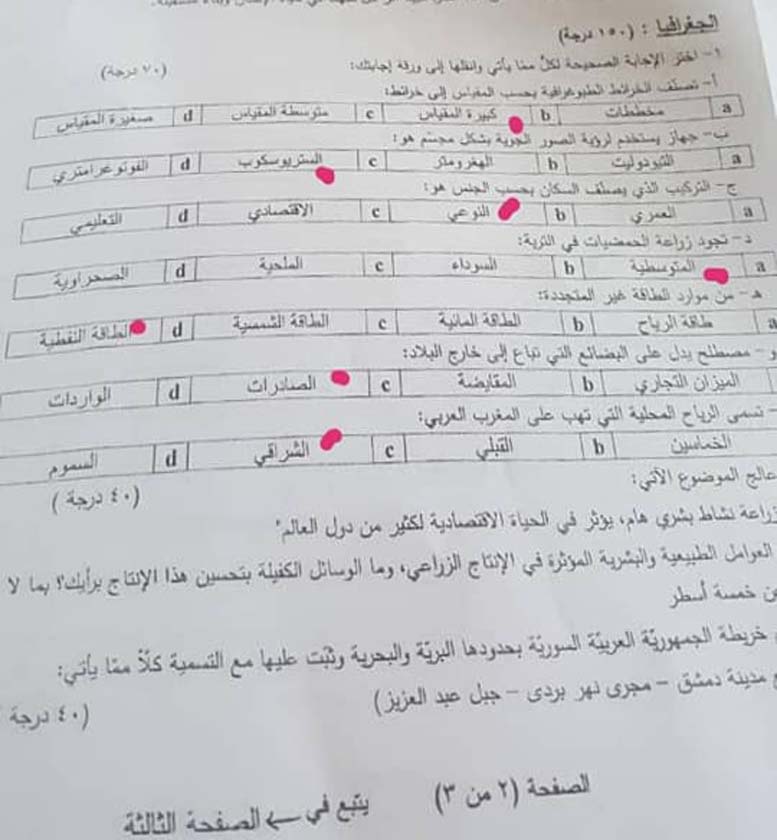 الجغرافيا : (١٥٠ درجة)
١- اختر الإجابة الصحيحة لكلّ ممّا يأتي وانقلها إلى ورقة إجابتك: (٧٠ درجة)
أ- تصنّف الخرائط الطبوغرافية بحسب المقياس إلى خرائط:
a مخططات b كبيرة المقياس c متوسطة المقياس d صغيرة المقياس
ب- جهاز يستخدم لرؤية الصور الجوية بشكل مجسّم هو:
a التيودوليت b الهغرومتر c الستريوسكوب d الفوتوغرامتري
ج- التركيب الذي يصنّف السكان بحسب الجنس هو:
a العمري b النوعي c الاقتصادي d التعليمي
د- تجود زراعة الحمضيات في التربة:
a المتوسطية b السوداء c الملحية d الصحراوية
هـ- من موارد الطاقة غير المتجددة:
a طاقة الرياح b الطاقة المائية c الطاقة الشمسية d الطاقة النفطية
و- مصطلح يدل على البضائع التي تباع إلى خارج البلاد:
الميزان التجاري b المقايضة c الصادرات d الواردات
- تسمى الرياح المحلية التي تهب على المغرب العربي:
الخماسين b القبلي c الشراقي d السموم
عالج الموضوع الآتي: (٤٠ درجة)
زراعة نشاط بشري هام، يؤثر في الحياة الاقتصادية لكثير من دول العالم"
العوامل الطبيعية والبشرية المؤثرة في الإنتاج الزراعي، وما الوسائل الكفيلة بتحسين هذا الإنتاج برأيك؟ بما لا
عن خمسة أسطر
خريطة الجمهوريّة العربيّة السوريّة بحدودها البريّة والبحرية وثبّت عليها مع التسمية كلّاً ممّا يأتي:
مدينة دمشق - مجرى نهر بردى - جبل عبد العزيز) (٤٠ درجة
الصفحة (٢ من ٣) يتبع في ← الصفحة الثالثة